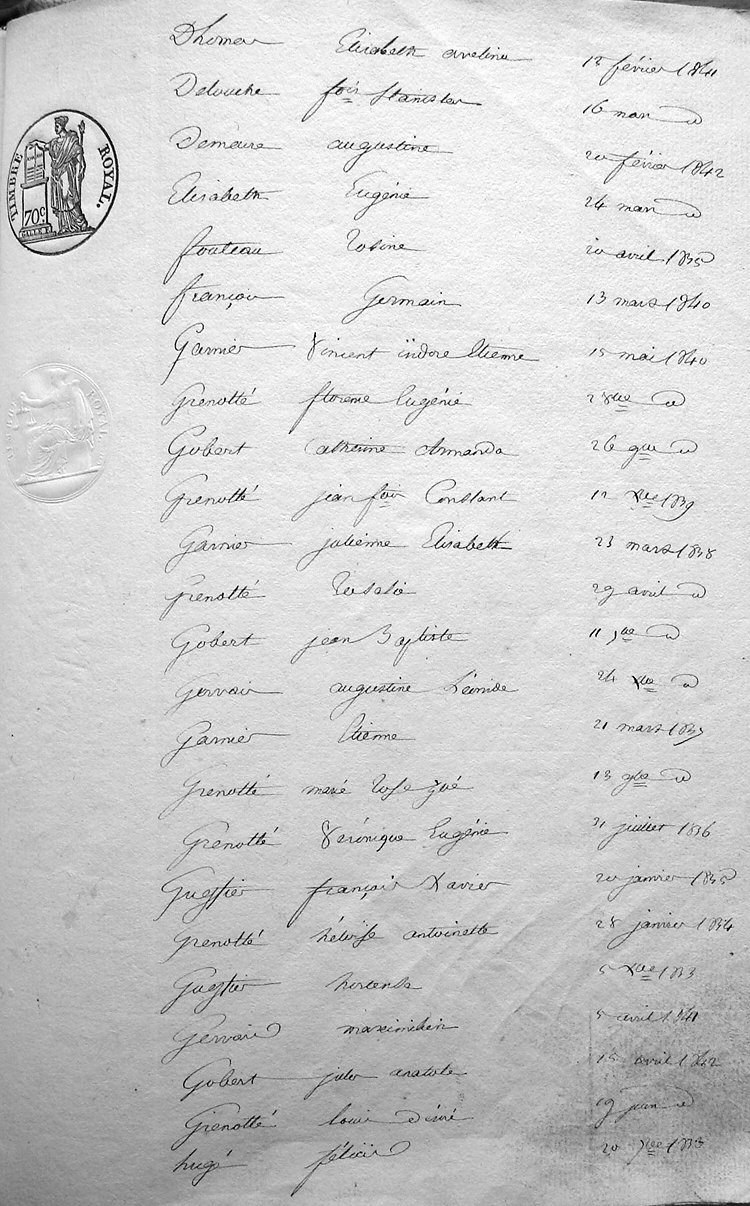 Dhomer Elisabeth avelina 12 février 1841
Delouche fois Stanislas 16 mars d
Demeure augustine 20 février 1842
Elisabeth Eugénie 24 mars d
TIMBRE ROYAL.
70c
fouteau Rosine 20 avril 1835
françois Germain 13 mars 1840
Garnier Vincent isidore Etienne 15 mai 1840
Grenotté florence Eugénie d
Gobert Catherine Armanda 26 9bre d
Grenotté jean fois Constant 12 Xbre 1839
Garnier julienne Elisabeth 23 mars 1838
grenotté Rosalie 29 avril d
Gobert jean Baptiste 11 d
Gervais augustine Léonide 24 Xbre d
Garnier Etienne 21 mars 1837
Grenotté marie Rose zoé 13 9bre d
Grenotté Véronique Eugénie 21 juillet 1836
Guestier françois Xavier 20 janvier 1835
grenotté héloise antoinette 28 janvier 1834
Guestier hortense 5 Xbre
Gervais maximilien 5 avril 1841
Gobert jules anatole 15 avril 1842
Grenotté louis désiré 19 juin d
hugé félicie 20